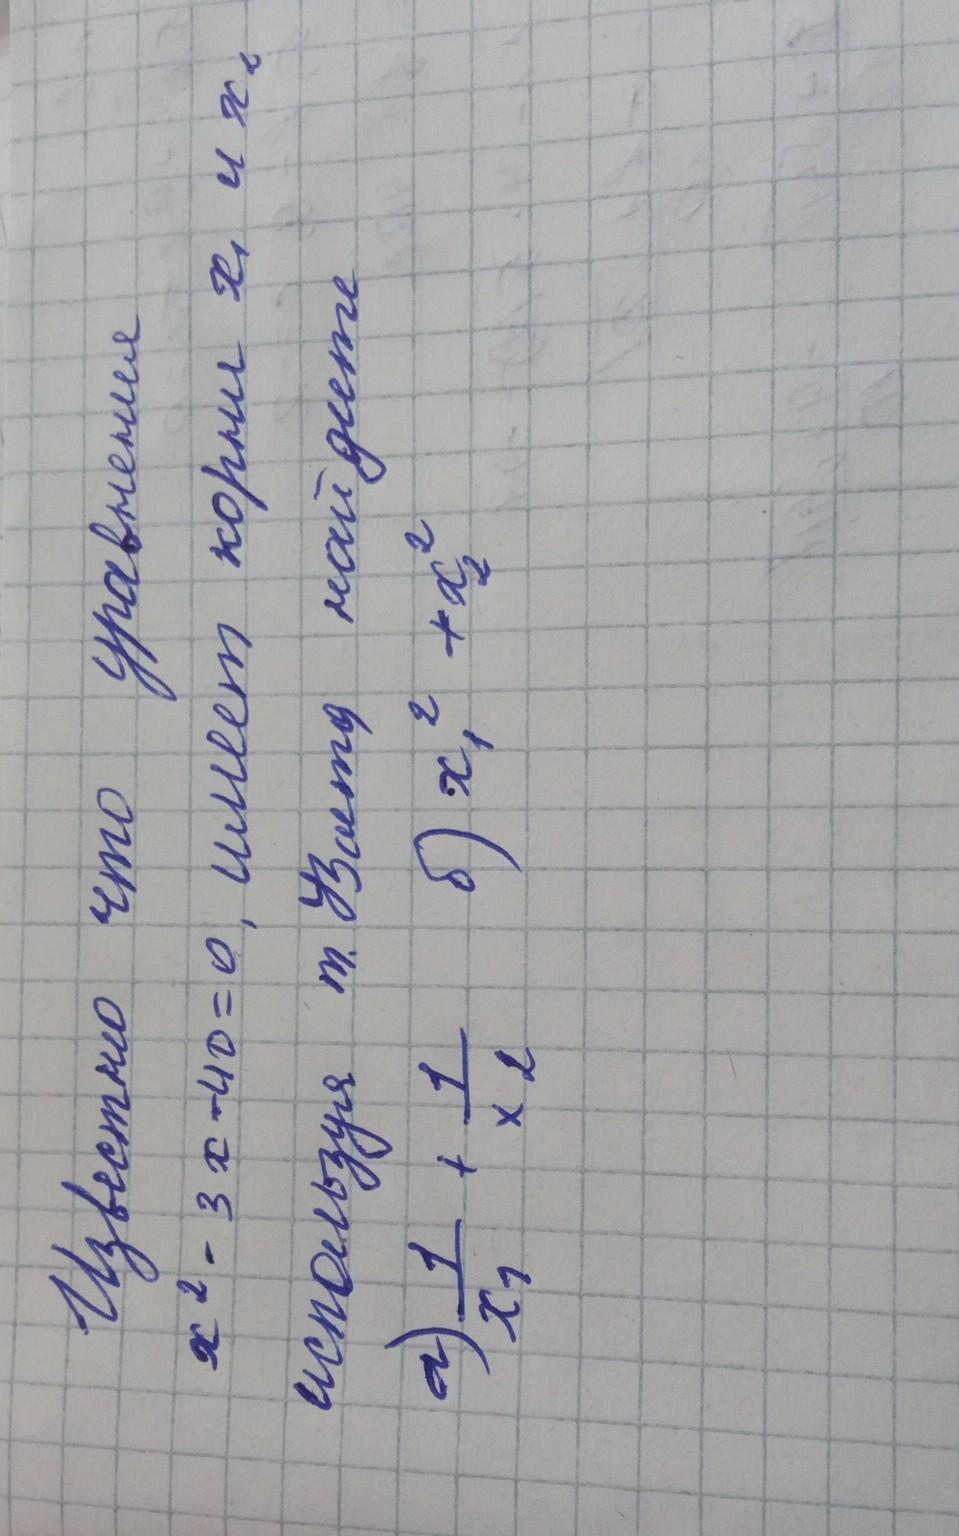 Известно что уравнения
x² - 3x - 40 = 0, имеет корни x₁ и x₂
используя т. Виета найдите
а) 1/x₁ + 1/x₂ б) x₁² + x₂²